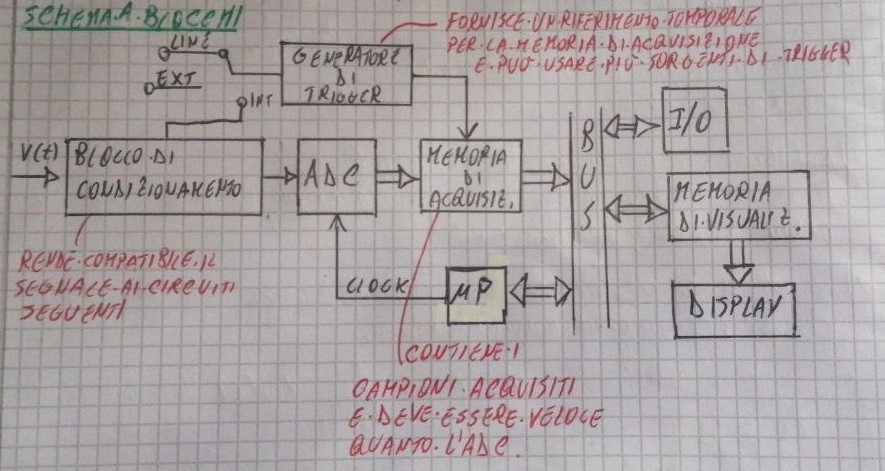 SCHEMA.A.BLOCCHI
FORNISCE.UN.RIFERIMENTO.TEMPORALE
PER.LA.MEMORIA.DI.ACQUISIZIONE
E.PUÒ.USARE.PIÙ.SORGENTI.DI.TRIGGER
LINE
EXT
INT
GENERATORE
DI
TRIGGER
V(t)
BLOCCO.DI
CONDIZIONAMENTO
ADC
MEMORIA
DI
ACQUISIZ.
BUS
I/O
MEMORIA
DI.VISUALIZ.
DISPLAY
CLOCK
μP
RENDE.COMPATIBILE.IL
SEGNALE.AI.CIRCUITI
SEGUENTI
CONTIENE.I
CAMPIONI.ACQUISITI
E.DEVE.ESSERE.VELOCE
QUANTO.L'ADC.